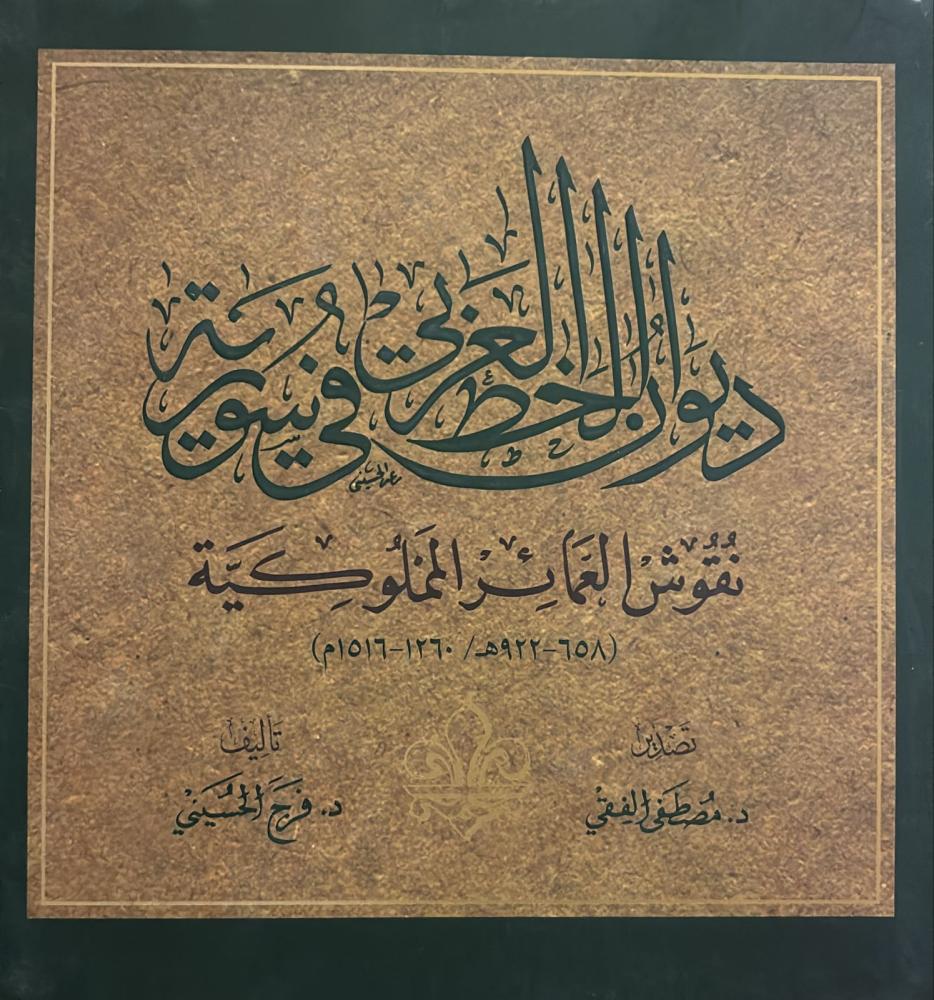 ديوان الخط العربي في سورية
نُقُوش العَمَائِر المَمْلُوكِيَّة
(٦٥٨-٩٢٢هـ/ ١٢٦٠-١٥١٦م)
تَصْدِير
د. مُصْطَفَى الفِقي
تَأليف
د. فَرَج الحُسَيْني